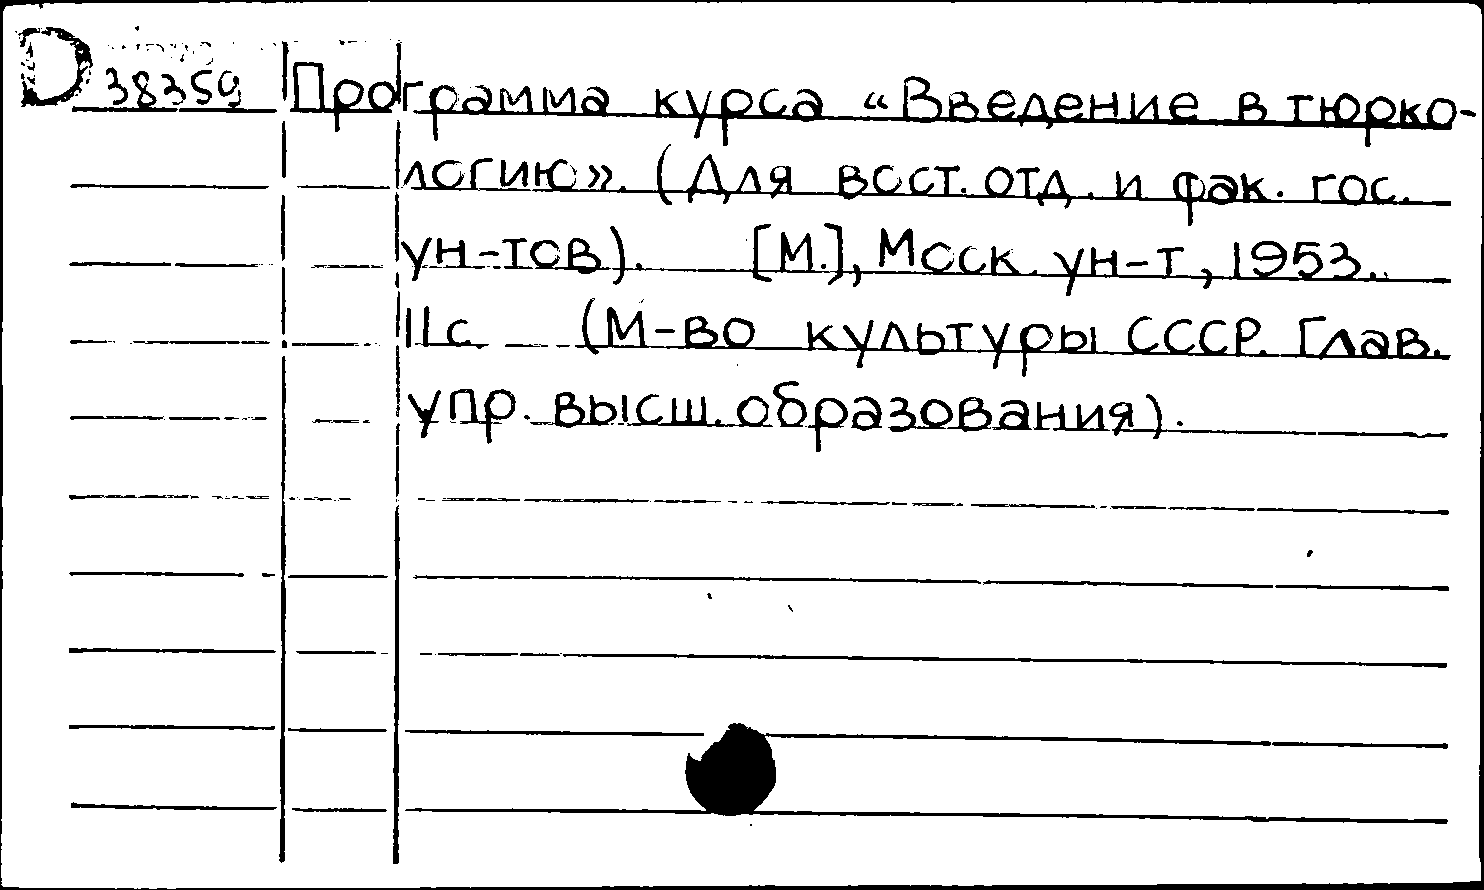 D 38359 Программа курса «Введение в тюрко-
логию». (Для вост. отд. и фак. гос.
ун-тов). [М.], Моск. ун-т, 1953.
11с. (М-во культуры СССР. Глав.
упр. высш. образования).